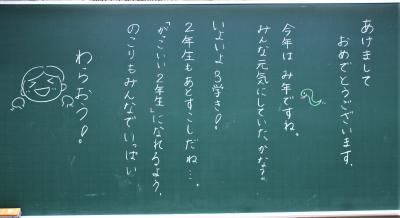 あけまして
おめでとうございます。
今年は み年ですね。
みんな元気にしていたかな？
いよいよ ３学き！
２年生もあとすこしだね…。
「かっこいい２年生」になれるよう、
のこりもみんなでいっぱい
わらおう！